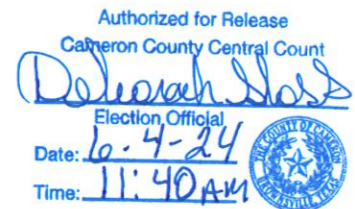 Authorized for Release
Cameron County Central Count
Deborah
Election Official
Date: 6-4-24
Time: 11:40 AM
THE COUNTY OF CAMERON
BROWNSVILLE, TEXAS